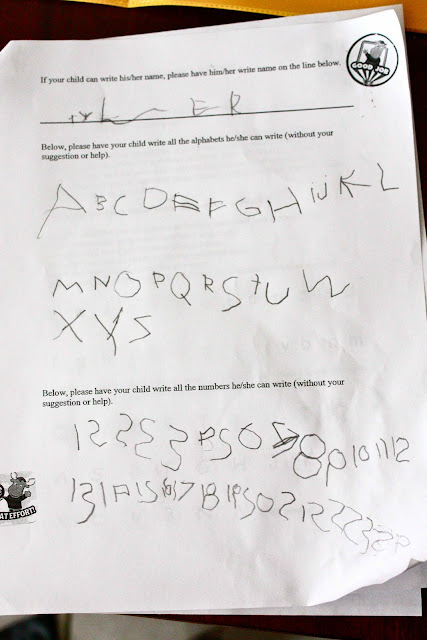 If your child can write his/her name, please have him/her write name on the line below.
GOOD JOB
TYLER
Below, please have your child write all the alphabets he/she can write (without your
suggestion or help).
A B C D E F G H I J K L
M N O P Q R S t U W
X Y S
Below, please have your child write all the numbers he/she can write (without your
suggestion or help).
10 11 12
13 1 15 16 17 18
AT EFFORT!